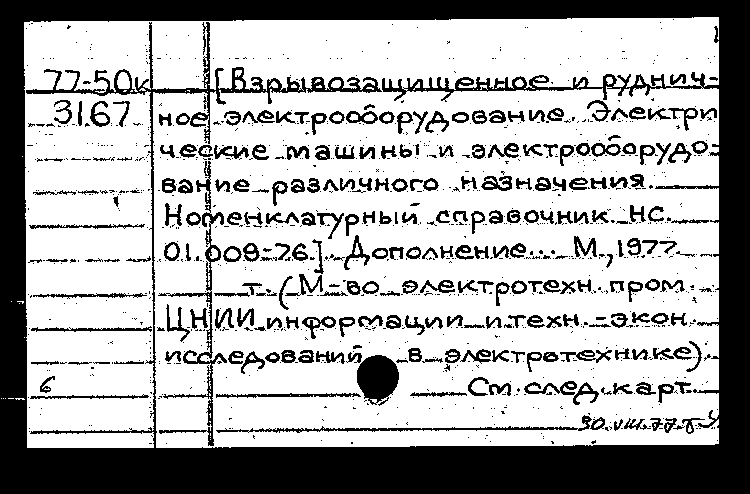 77-50к [Взрывозащищенное и руднич-
3167 ное электрооборудование. Электри
ческие машины и электрооборудо-
вание различного назначения.
Номенклатурный справочник НС.
01.009-76]. Дополнение... М., 1977
т. (М-во электротехн. пром.
ЦНИИ информации и техн.-экон.
исследований в электротехнике).
6 См. след. карт.
30.VIII.77.